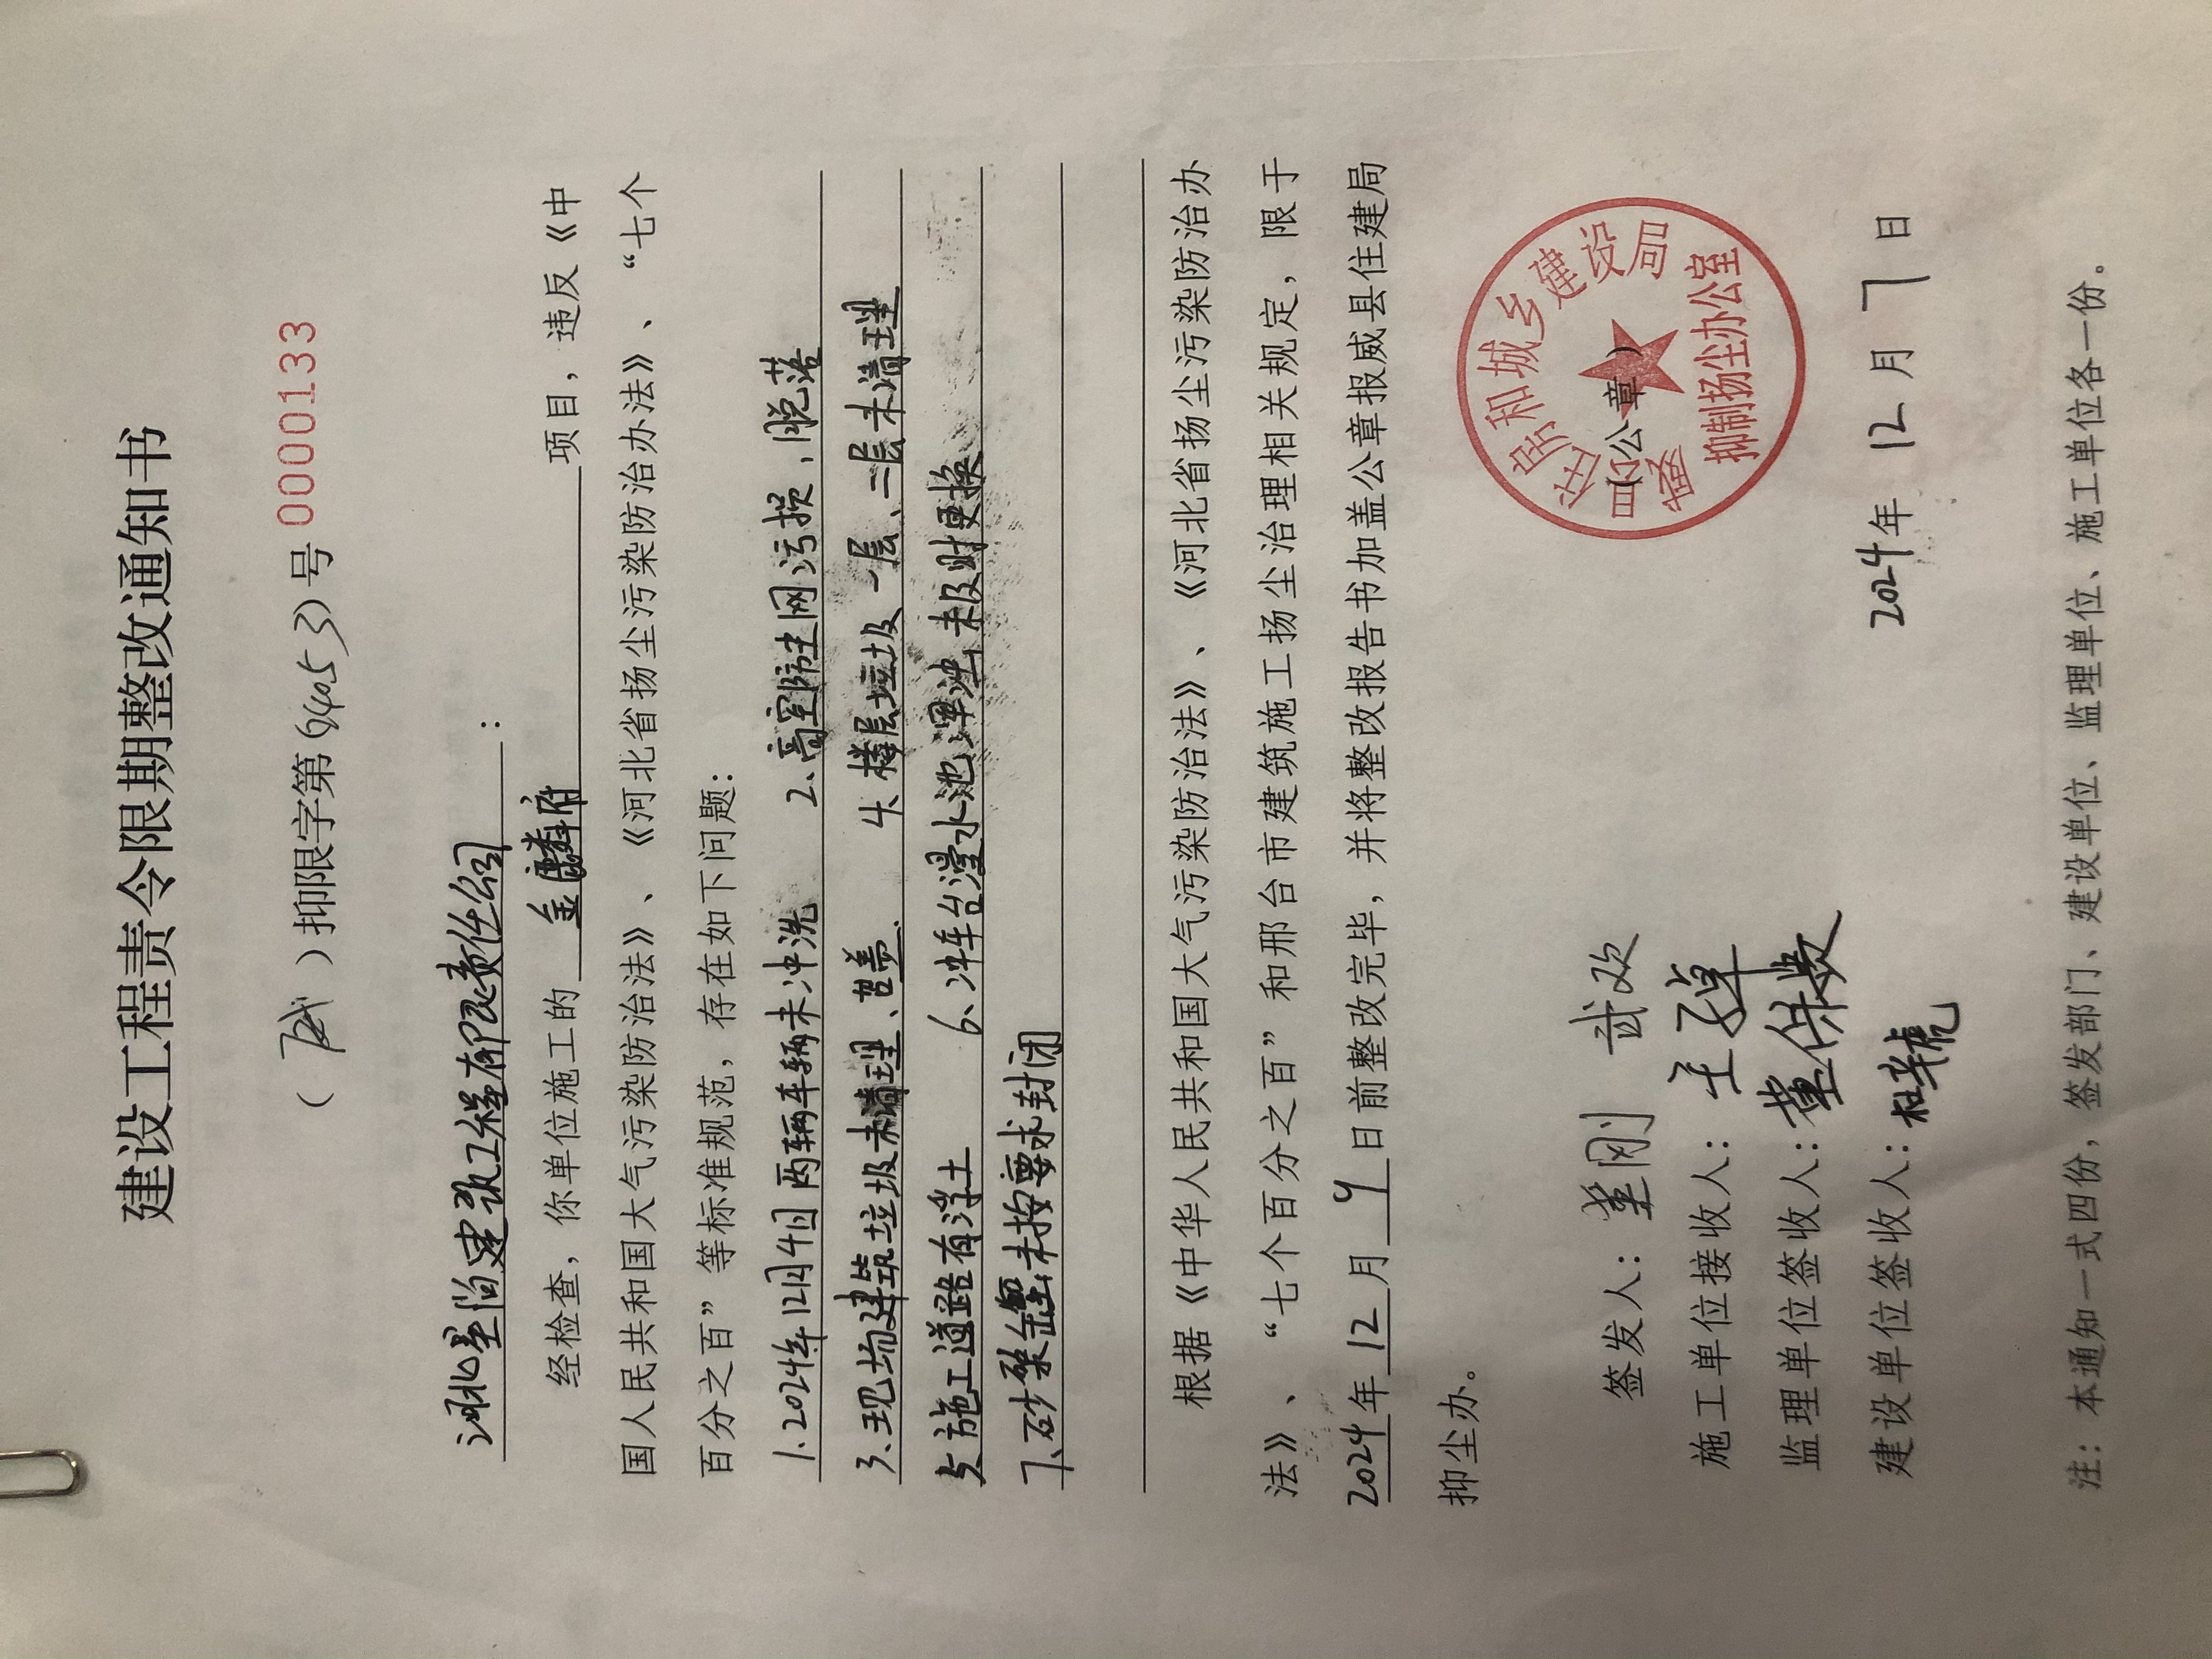 建设工程责令限期整改通知书
（威）抑限字第(24053)号 0000133
河北基尚建筑工程有限责任公司：
经检查，你单位施工的 金麟府 项目，违反《中
国人民共和国大气污染防治法》、《河北省扬尘污染防治办法》、“七个
百分之百”等标准规范，存在如下问题：
1.2024年12月4日两车辆未冲洗 2.高空防尘网污损、脱落
3.现场建筑垃圾未清理、苫盖. 4.楼层垃圾一层、二层未清理
5.施工道路有浮土 6.冲车台浸水池浑浊未及时更换
7.砂浆罐未按要求封闭
根据《中华人民共和国大气污染防治法》、《河北省扬尘污染防治办
法》、“七个百分之百”和邢台市建筑施工扬尘治理相关规定，限于
2024年12月9日前整改完毕，并将整改报告书加盖公章报威县住建局
抑尘办。
住房和城乡建设局
抑制扬尘办公室
（公章）
签发人：
施工单位接收人：
监理单位签收人：董保
建设单位签收人：
2024年12月7日
注：本通知一式四份，签发部门、建设单位、监理单位、施工单位各一份。